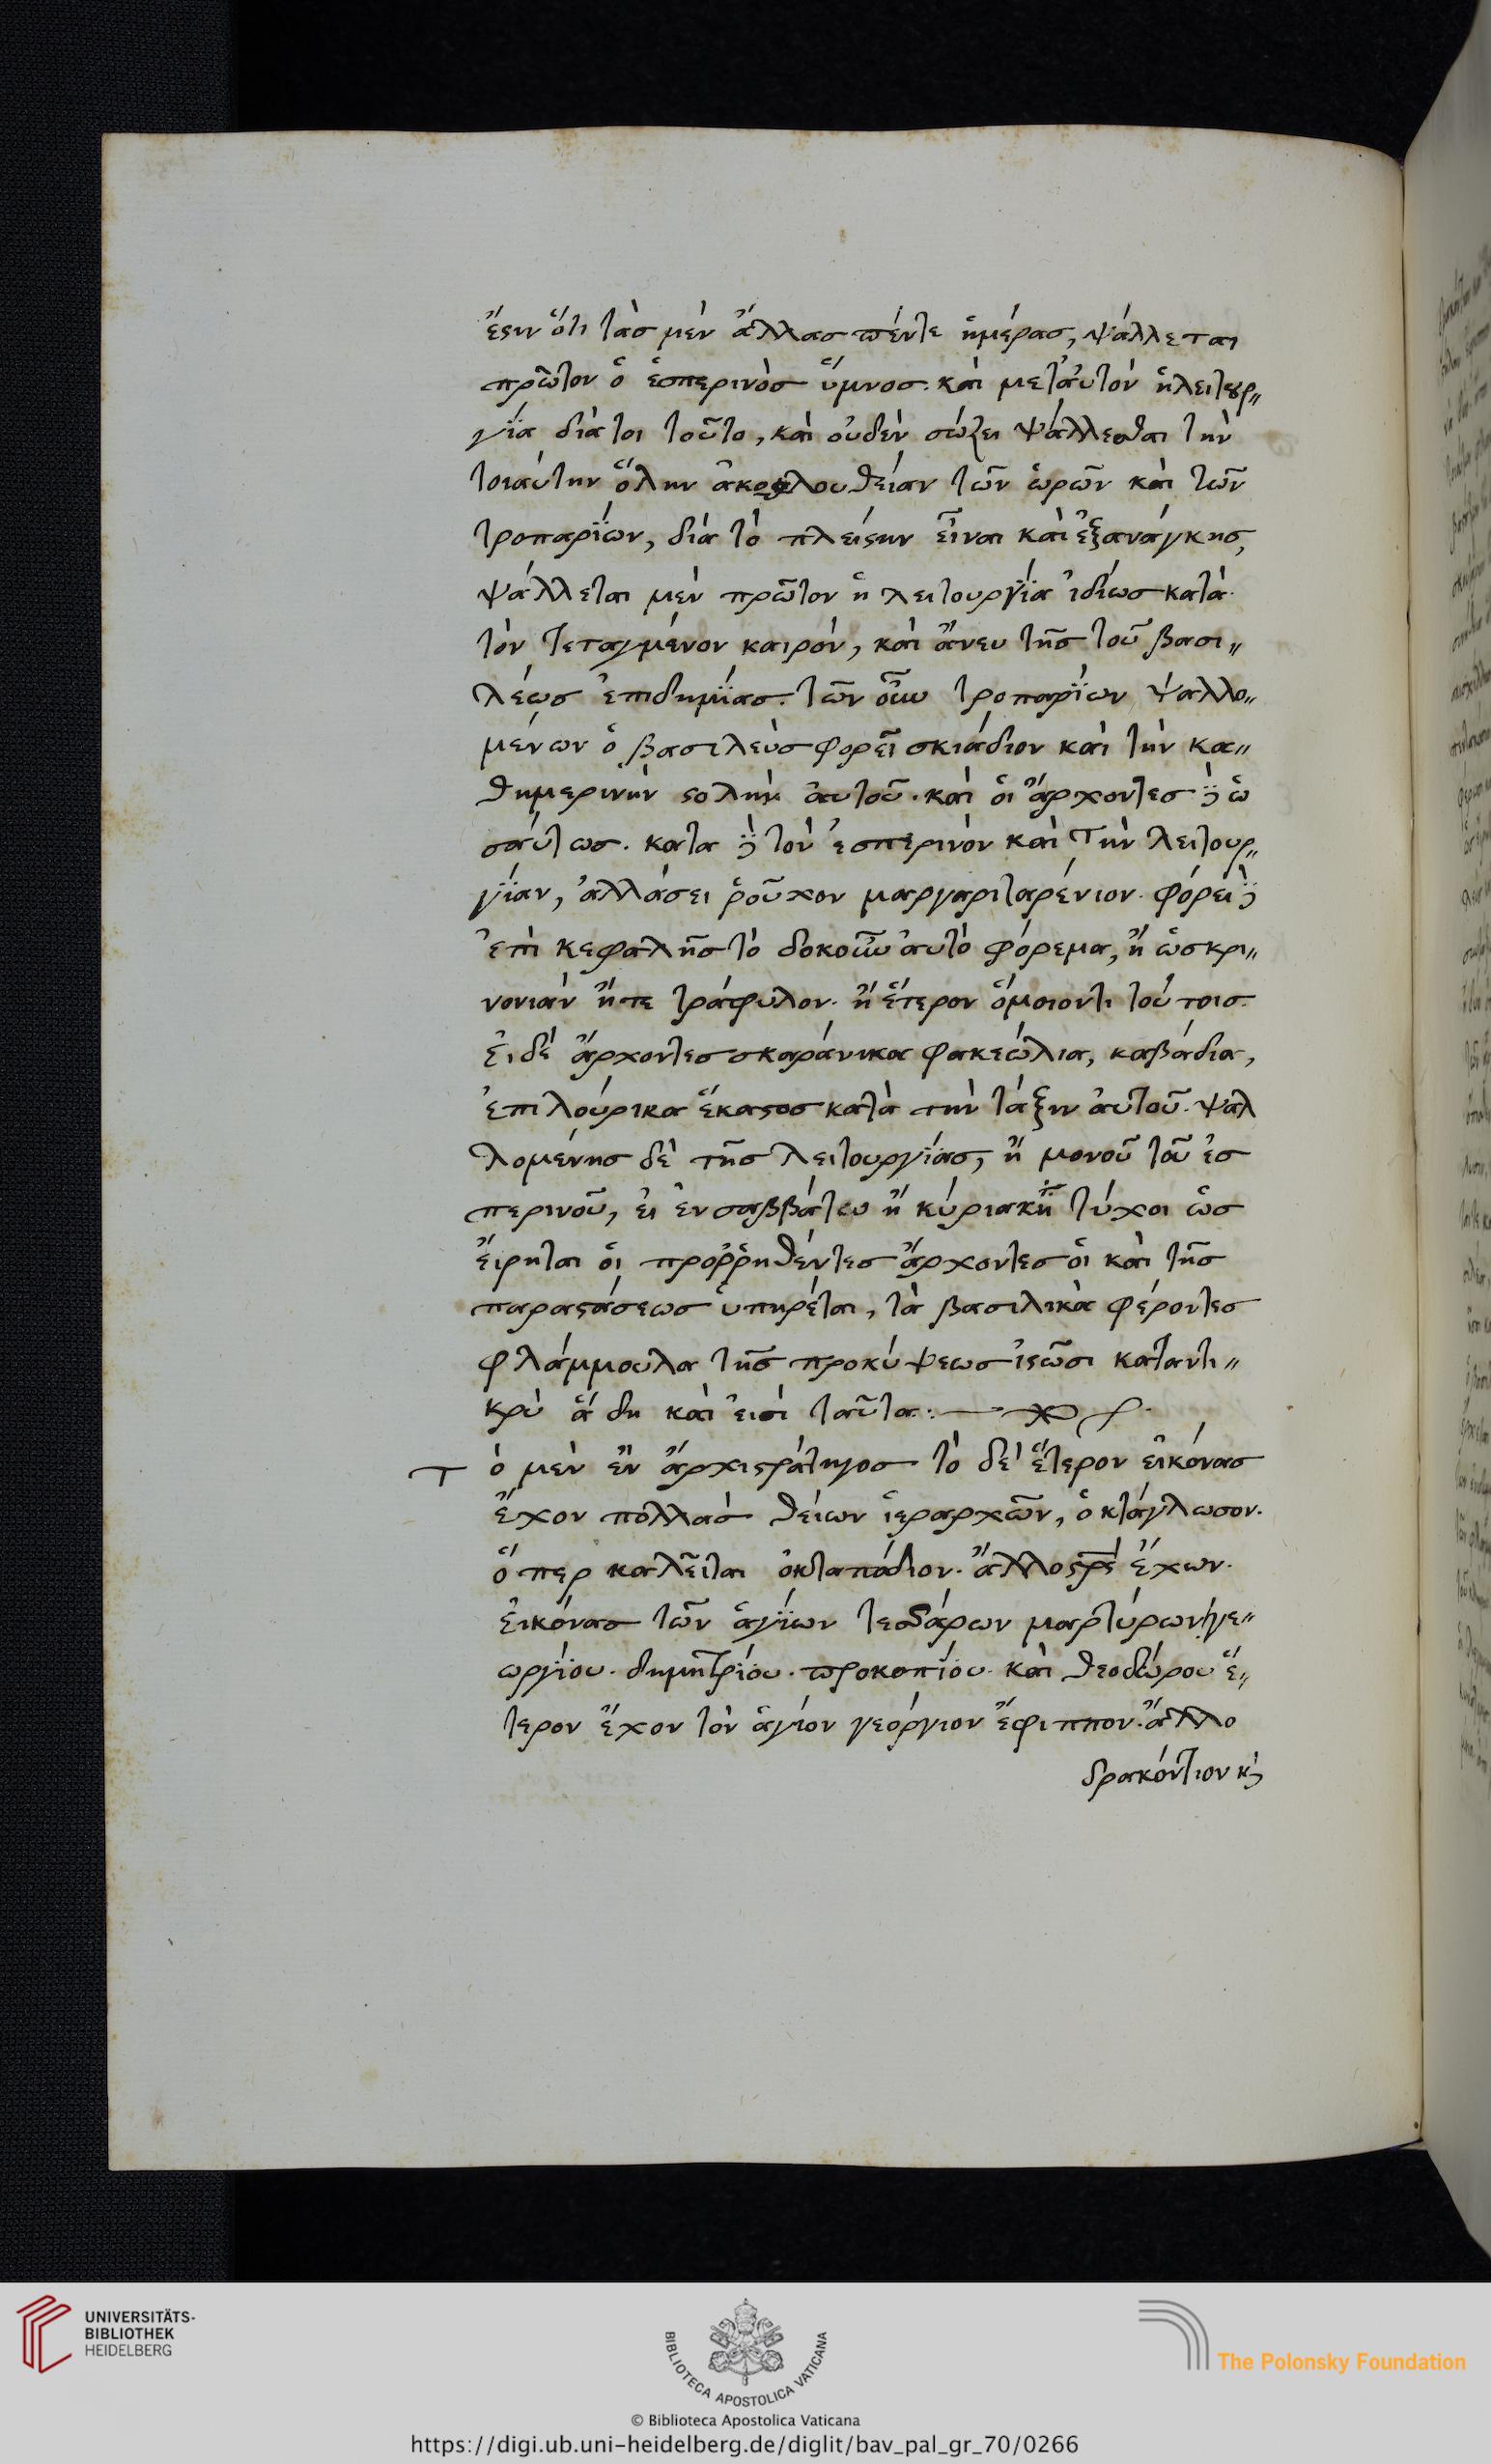 ἔστιν ὅτι τὰσ μὲν ἄλλασ πέντε ἡμέρασ, ψάλλεται
πρῶτον ὁ ἑσπερινὸσ ὕμνοσ. καὶ μετ' ἀυτὸν ἡ λειτουρ„
γΐα διάτοι τοῦτο, καὶ ουδὲν σώζει ψάλλεσθαι τὴν
τοιαύτην ὅλην ἀκολουθείαν τῶν ὡρῶν καὶ τῶν
τροπαρΐων, διὰ τὸ πλείστην εἶναι καὶ ἐξανάγκησ,
ψάλλεται μὲν πρῶτον ἡ λειτουργΐα ἰδίωσ κατὰ
τὸν τεταγμένον καιρόν, καὶ ἄνευ τῆσ τοῦ βασι„
λέωσ ἐπιδημΐασ. τῶν οὖν τροπαρΐων ψαλλο„
μένων ὁ βασιλεὺσ φορεῖ σκιάδιον καὶ τὴν κα„
θημερινὴν στολὴν ἀυτοῦ. καὶ ὁι ἄρχοντεσ δὲ ὡ
σάυτωσ. κατα δὲ τὸν ἑσπερινὸν καὶ τὴν λειτουρ„
γΐαν, ἀλλάσει ῥοῦχον μαργαριταρένιον. φόρει δὲ
ἐπὶ κεφαλῆσ τὸ δοκοῦν ἀυτὸ φόρεμα, ἢ ὡσ κρι„
νονιὰν ἤτε τράφυλον. ἢ ἕτερον ὅμοιόντι τούτοισ.
ἑι δὲ ἄρχοντεσ σκαράνικα φακεώλια, καβάδια,
ἐπιλούρικα ἕκαστοσ κατὰ τὴν τάξιν ἀυτοῦ. ψαλ
λομένησ δὲ τῆσ λειτουργΐασ, ἢ μονοῦ τοῦ ἑσ
περινοῦ, ἐι ἐν σαββάτω ἢ κύριακῆ τύχοι ὡσ
ἔιρηται ὁι προῤῥηθέντεσ ἄρχοντεσ ὁι καὶ τῆσ
παραστάσεωσ ὑπηρέται, τὰ βασιλικὰ φέροντεσ
φλάμμουλα τῆσ προκύψεωσ ἱστῶσι καταντι„
κρὺ ἅ δη καὶ ἐισὶ ταῦτα:
ὁ μὲν ἓν ἄρχιστράτηγοσ τὸ δὲ ἕτερον εἰκόνασ
ἔχον πολλὰσ θείων ἱεραρχῶν, ὀκτάγλωσον.
ὅπερ καλεῖται ὀκταπόδιον. ἄλλο ἔχων.
ἐικόνασ τῶν ἁγΐων τεσσάρων μαρτύρων γε„
ωργΐου. δημητρΐου. προκοπΐου. καὶ θεοδώρου ἕ„
τερον ἔχον τὸν ἅγίον γεόργιον ἔφιππον. ἄλλο
δρακόντιον καὶ
UNIVERSITÄTS-
BIBLIOTHEK
HEIDELBERG
BIBLIOTECA APOSTOLICA VATICANA
The Polonsky Foundation
© Biblioteca Apostolica Vaticana
https://digi.ub.uni-heidelberg.de/diglit/bav_pal_gr_70/0266